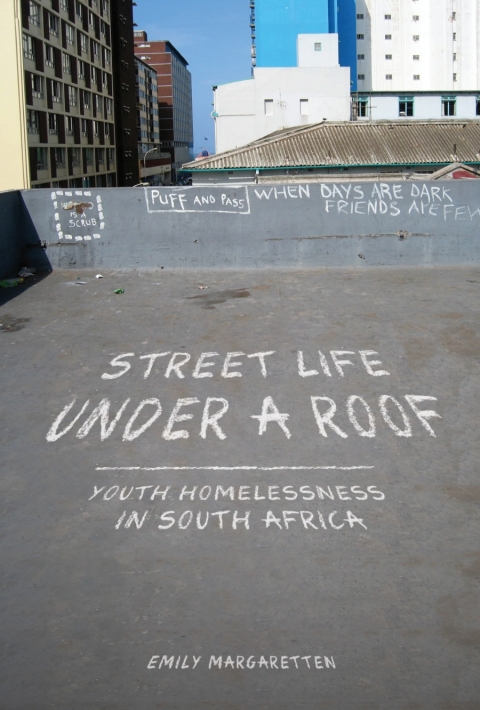 IS A
SCRUB
PUFF AND PASS
WHEN DAYS ARE DARK
FRIENDS ARE FEW
STREET LIFE
UNDER A ROOF
YOUTH HOMELESSNESS
IN SOUTH AFRICA
EMILY MARGARETTEN